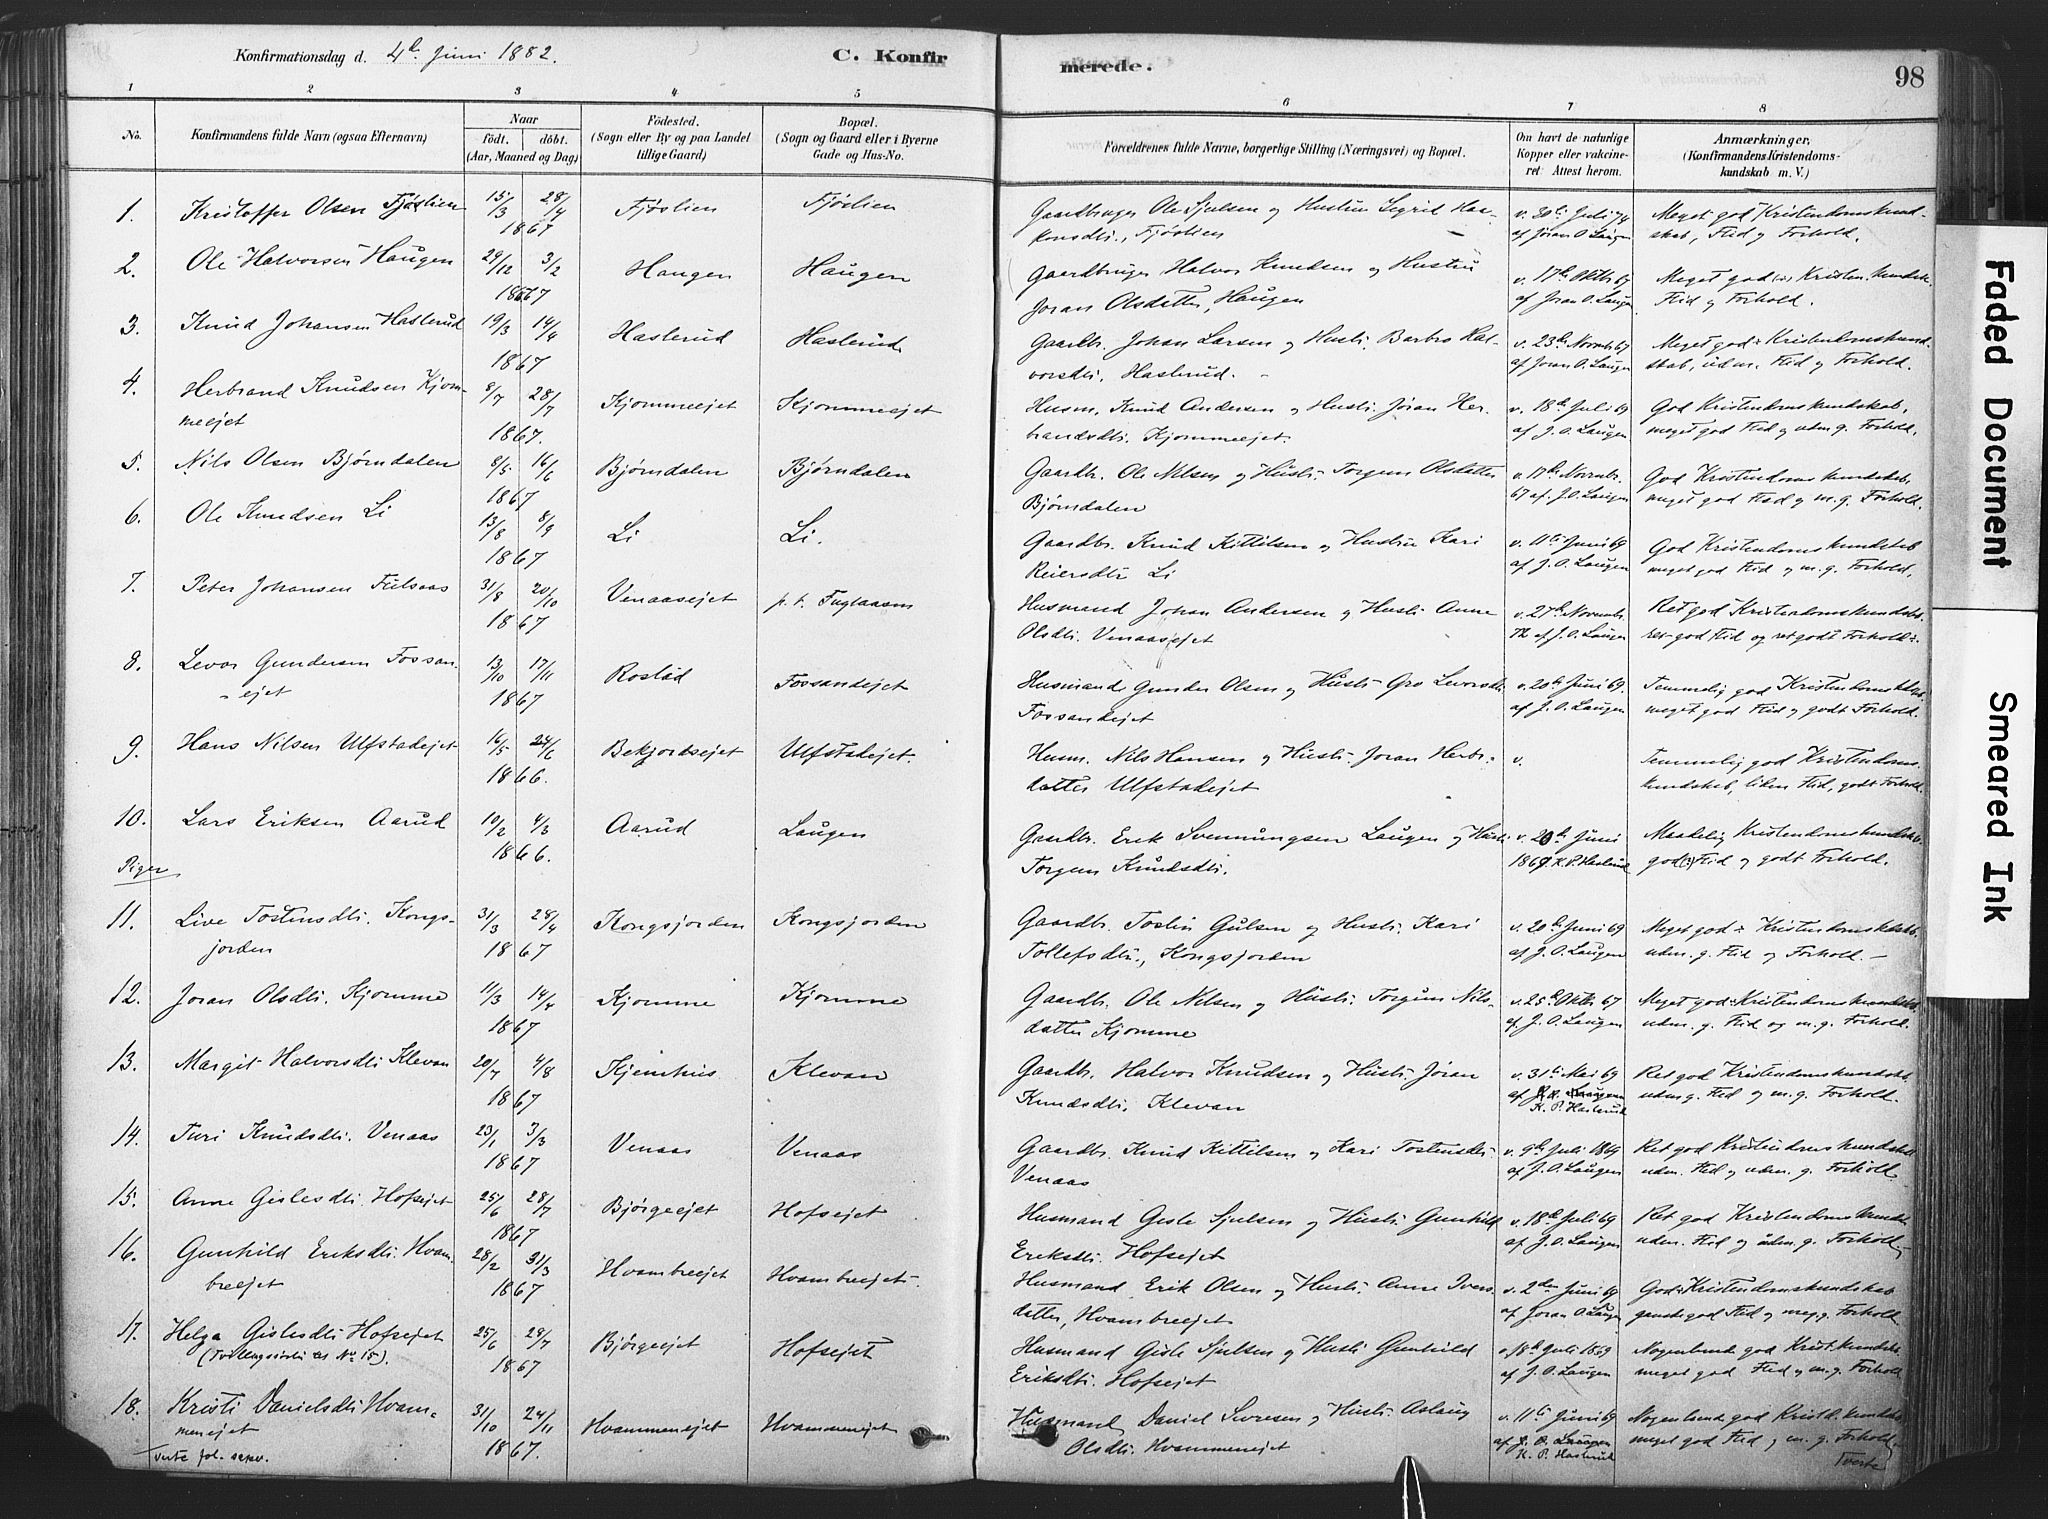 Konfirmationsdag d. 4de Juni 1882.
C. Konfir
merede.
98
1 2 3 4 5 6 7 8
No.
Konfirmandens fulde Navn (ogsaa Efternavn)
Naar
födt. döbt.
(Aar, Maaned og Dag)
Födested.
(Sogn eller By og paa Landet
tillige Gaard)
Bopæl.
(Sogn og Gaard eller i Byerne
Gade og Hus-No.
Forældrenes fulde Navne, borgerlige Stilling (Næringsvei) og Bopæl.
Om havt de naturlige
Kopper eller vakcine-
ret Attest herom.
Anmærkninger,
(Konfirmandens Kristendoms-
kundskab m. V.)
1. Kristoffer Olsen Fjøslien 15/3 28/4 Fjøslien Fjøslien Gaardbruger Ole Sjulsen og Hustru Sigrid Haa- v. 30te Juli 74 Meget god Kristendomskund-
1867 konsdtr., Fjøslien af Jøran O. Laugen skab, Flid og Forhold.
2. Ole Halvorsen Haugen 29/12 3/2 Haugen Haugen Gaardbruger Halvor Knudsen og Hustru v. 17de Oktbr 67 Meget god Kristen.kundsk.
1867 Joran Olsdatter, Haugen af Joran O. Laugen Flid og Forhold.
3. Knud Johansen Haslerud 19/3 14/4 Haslerud Haslerud Gaardbr. Johan Larsen og Hustr. Barbro Hal- v. 23de Novmbr 67 Meget god Kristendomskund-
1867 vorsdtr. Haslerud. af Joran O. Laugen skab, udm. Flid og Forhold.
4. Herbrand Knudsen Kjom- 8/7 28/7 Kjommeejet Kjommeejet Husm. Knud Andersen og Hustr. Jöran Her- v. 18de Juli 69 God Kristendomskundskab,
meejet 1867. brandsdtr. Kjommeejet. af J. O. Laugen meget god Flid og udm. g. Forhold.
5. Nils Olsen Bjørndalen 8/5 16/6 Bjørndalen Bjørndalen Gaardbr. Ole Nilsen og Hustr. Torgun Olsdatter v. 17de Novmbr. God Kristendomskundskab,
1867 Bjørndalen 67 af J. O. Laugen meget god Flid og m. g. Forhold.
6. Ole Knudsen Li 13/8 8/9 Li Li. Gaardbr. Knud Kittilsen og Hustru Kari v. 11te Juni 69 God Kristendomskundskab
1867 Reiersdtr Li af J. O. Laugen meget god Flid og m. g. Forhold.
7. Peter Johansen 31/8 20/10 Venaasejet p. t. Fuglaasen Husmand Johan Andersen og Hustr. Anne v. 27de Novembr. Ret god Kristendomskundskab.
1867 Olsdtr. Venaasejet 72 af J. O. Laugen ret god Flid og ret godt Forhold.
8. Levor Gundersen Fossan- 13/10 17/11 Roslad Fossanejet Husmand Gunder Olsen og Hustr. Gro Levorsdtr v. 20de Juni 69. Temmelig god Kristendomskdskb.
ejet 1867 Fossanejet af J. O. Laugen meget god Flid og godt Forhold.
9. Hans Nilsen Ulfstadejet 16/5 24/6 Bekjordsejet Ulfstadejet. Husm. Nils Hansen og Hustr. Joran Herbr. v. Temmelig god Kristendoms-
1866. datter Ulfstadejet kundskab, liden Flid, godt Forhold
10. Lars Eriksen Aarud 10/2 4/3 Aarud Laugen Gaardbr. Erik Svennungsen Laugen og Hustr. v. 20de Juni Maadelig Kristendomskundskab
1866. Torgun Knudsdtr. 1867 K. P. Haslerud god Flid og godt Forhold.
Piger
11. Live Tostensdtr. Kongs- 31/3 28/4 Kongsjorden Kongsjorden Gaardbr. Tostin Gulsen og Hustr. Kari v. 20de Juni 69 Meget god Kristendomskdskb.
jorden 1867 Tollefsdtr., Kongsjorden af J. O. Laugen udm. g. Flid og Forhold.
12. Joran Olsdtr. Kjomme 11/3 14/4 Kjomme Kjomme Gaardbr. Ole Nilsen og Hustr. Torgun Nils- v. 25de Oktbr 67 Meget god Kristendomskundskab
1867 datter Kjomme af J. O. Laugen udm. g. Flid og m. g. Forhold.
13. Margit Halvorsdtr. Klevan 20/7 4/8 Kjemhus Klevan Gaardbr. Halvor Knudsen og Hustr. Jöran v. 31te Mai 69 Ret god Kristendomskundskab.
1867 Knudsdtr. Klevan af J. O. Laugen udm g. Flid og m. g. Forhold.
K. P. Haslerud
14. Turi Knudsdtr. Venaas 23/1 3/3 Venaas Venaas Gaardbr. Knud Kittilsen og Kari Tostensdtr. v. 9de Juli 1869 Ret god Kristendomskundskab
1867 Venaas af J. O. Laugen udm. Flid og udm. g. Forhold
15. Anne Gislesdtr. Hofsejet 25/6 28/7 Bjørgeejet Hofsejet Husmand Gisle Sjulsen og Hustr. Gunhild v. 18de Juli 69 Ret god Kristendomskundsk
1867 Eriksdtr. Hofsejet af J. O. Laugen udm. Flid og udm. g. Forhold
16. Gunhild Eriksdtr. Hvam- 28/2 31/3 Hvambreejet Hvambreejet. Husmand Erik Olsen og Hustr. Anne Ivers- v. 2den Juni 69 God Kristendomskundskab
breejet 1867 datter, Hvambreejet af Joran O Laugen ganske god Flid og meg g. Forhold
17. Helga Gislesdtr. Hofsejet 25/6 28/7 Bjørgeejet Hofsejet Husmand Gisle Sjulsen og Hustr. Gunhild v. 18de Juli 1869 Nogenlunde god Krist. kundskab
(Tvillingsøster til No 15). 1867 Eriksdtr. Hofsejet af J. O. Laugen meget god Flid og m. g. Forhold
18. Kristi Danielsdtr. Hvam- 31/10 24/11 Hvammenejet Hvammenejet Husmand Daniel Syvresen og Hustr. Aslaug v. 11te Juni 69 Nogenlund god Kristd. kundsk
menejet 1867. Olsdtr. Hvammenejet af J. O. Laugen meget god Flid og m. g. Forhold.
verte fol. seqv. K. P. Haslerud Tverte
Faded Document
Smeared Ink